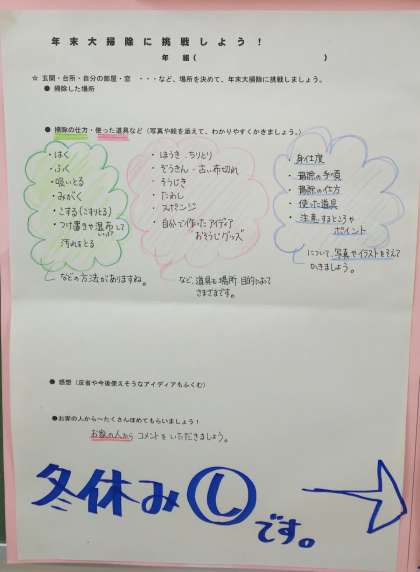 年末大掃除に挑戦しよう！
年 組（ ）
☆ 玄関・台所・自分の部屋・窓 ・・・など、場所を決めて、年末大掃除に挑戦しましょう。
● 掃除した場所
● 掃除の仕方・使った道具など（写真や絵を添えて、わかりやすくかきましょう。）
・はく
・ふく
・吸いとる
・みがく
・こする（こすりとる）
・つけ置きや湿布して
汚れをとる
などの方法がありますね。
・ほうき ちりとり
・ぞうきん・古い布切れ
・そうじき
・たわし
・スポンジ
・自分で作ったアイディア
おそうじグッズ
など、道具も場所、目的によって
さまざまです。
・身仕度
・掃除の手順
・掃除の仕方
・使った道具
・注意するところや
ポイント
について、写真やイラストをそえて
かきましょう。
● 感想（反省や今後使えそうなアイディアもふくむ）
●お家の人から～たくさんほめてもらいましょう！
お家の人から コメントをいただきましょう。
冬休み し です。